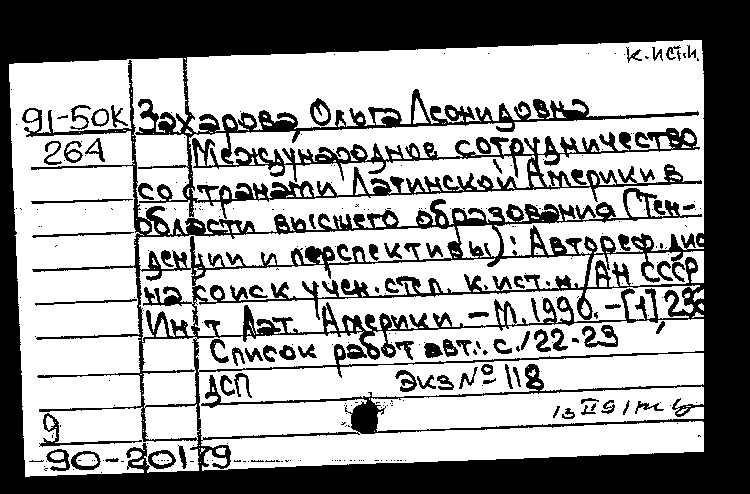 к.ист.н.
91-50К Захарова, Ольга Леонидовна
264 Международное сотрудничество
со странами Латинской Америки в
области высшего образования (Тен-
денции и перспективы): Автореф. дис
на соиск. учен. степ. к.ист.н. / АН СССР
Ин-т Лат. Америки. - М. 1990. - [1], 23с
Список работ авт.: с. 22-23
ДСП Экз № 118
9
90-20179